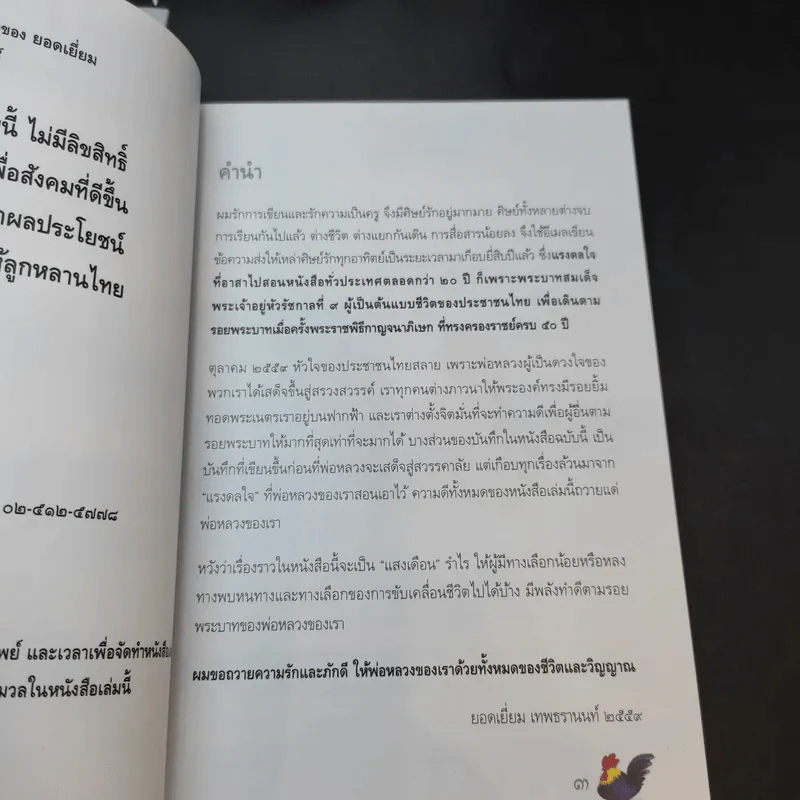 ของ ยอดเยี่ยม
นี้ ไม่มีลิขสิทธิ์
เพื่อสังคมที่ดีขึ้น
ผลประโยชน์
ให้ลูกหลานไทย
๐๒-๕๑๒-๕๗๗๘
และเวลาเพื่อจัดทำหนังสือ
มวลในหนังสือเล่มนี้
คำนำ
ผมรักการเขียนและรักความเป็นครู จึงมีศิษย์รักอยู่มากมาย ศิษย์ทั้งหลายต่างจบ
การเรียนกันไปแล้ว ต่างชีวิต ต่างแยกกันเดิน การสื่อสารน้อยลง จึงใช้อีเมลเขียน
ข้อความส่งให้เหล่าศิษย์รักทุกอาทิตย์เป็นระยะเวลามาเกือบยี่สิบปีแล้ว ซึ่งแรงดลใจ
ที่อาสาไปสอนหนังสือทั่วประเทศตลอดกว่า ๒๐ ปี ก็เพราะพระบาทสมเด็จ
พระเจ้าอยู่หัวรัชกาลที่ ๙ ผู้เป็นต้นแบบชีวิตของประชาชนไทย เพื่อเดินตาม
รอยพระบาทเมื่อครั้งพระราชพิธีกาญจนาภิเษก ที่ทรงครองราชย์ครบ ๕๐ ปี
ตุลาคม ๒๕๕๙ หัวใจของประชาชนไทยสลาย เพราะพ่อหลวงผู้เป็นดวงใจของ
พวกเราได้เสด็จขึ้นสู่สรวงสวรรค์ เราทุกคนต่างภาวนาให้พระองค์ทรงมีรอยยิ้ม
ทอดพระเนตรเราอยู่บนฟากฟ้า และเราต่างตั้งจิตมั่นที่จะทำความดีเพื่อผู้อื่นตาม
รอยพระบาทให้มากที่สุดเท่าที่จะมากได้ บางส่วนของบันทึกในหนังสือฉบับนี้ เป็น
บันทึกที่เขียนขึ้นก่อนที่พ่อหลวงจะเสด็จสู่สวรรคาลัย แต่เกือบทุกเรื่องล้วนมาจาก
“แรงดลใจ” ที่พ่อหลวงของเราสอนเอาไว้ ความดีทั้งหมดของหนังสือเล่มนี้ถวายแด่
พ่อหลวงของเรา
หวังว่าเรื่องราวในหนังสือนี้จะเป็น “แสงเดือน” รำไร ให้ผู้มีทางเลือกน้อยหรือหลง
ทางพบหนทางและทางเลือกของการขับเคลื่อนชีวิตไปได้บ้าง มีพลังทำดีตามรอย
พระบาทของพ่อหลวงของเรา
ผมขอถวายความรักและภักดี ให้พ่อหลวงของเราด้วยทั้งหมดของชีวิตและวิญญาณ
ยอดเยี่ยม เทพธรานนท์ ๒๕๕๙
๓